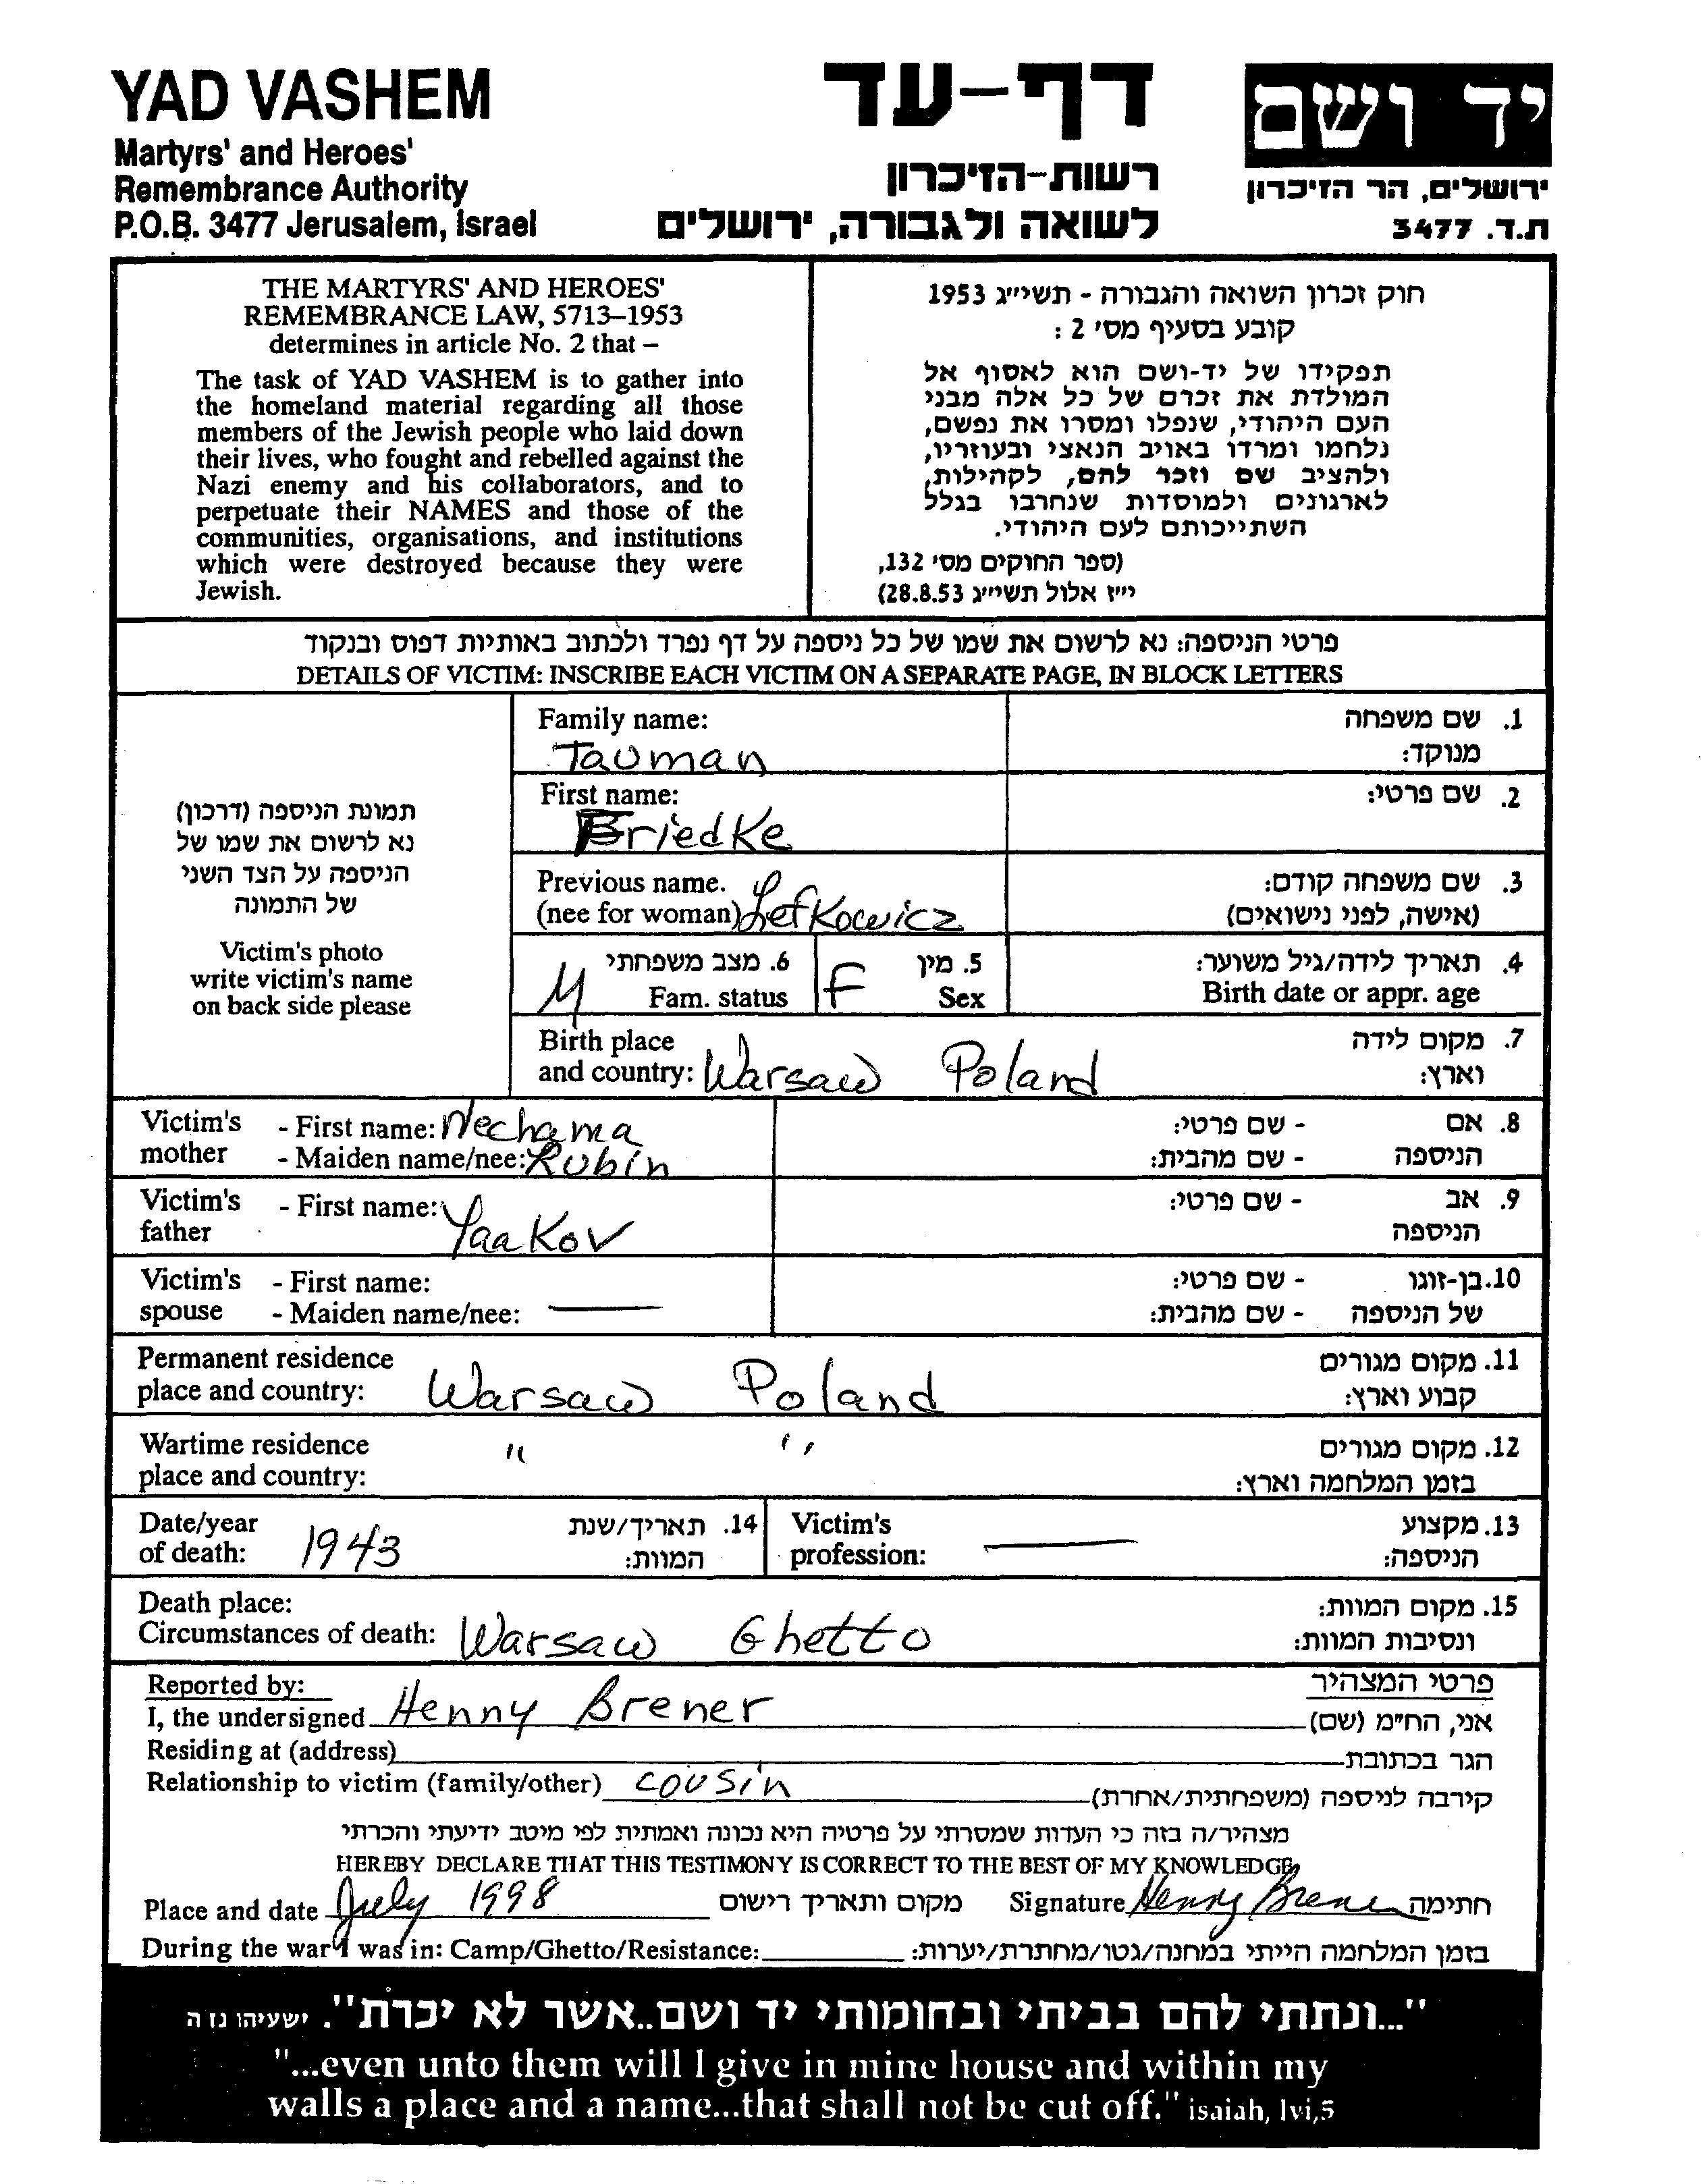 YAD VASHEM
Martyrs' and Heroes'
Remembrance Authority
P.O.B. 3477 Jerusalem, Israel
דף-עד
רשות-הזיכרון
לשואה ולגבורה, ירושלים
יד ושם
ירושלים, הר הזיכרון
ת.ד. 3477
THE MARTYRS' AND HEROES'
REMEMBRANCE LAW, 5713–1953
determines in article No. 2 that –
The task of YAD VASHEM is to gather into
the homeland material regarding all those
members of the Jewish people who laid down
their lives, who fought and rebelled against the
Nazi enemy and his collaborators, and to
perpetuate their NAMES and those of the
communities, organisations, and institutions
which were destroyed because they were
Jewish.
חוק זכרון השואה והגבורה - תשי"ג 1953
קובע בסעיף מס' 2 :
תפקידו של יד-ושם הוא לאסוף אל
המולדת את זכרם של כל אלה מבני
העם היהודי, שנפלו ומסרו את נפשם,
נלחמו ומרדו באויב הנאצי ובעוזריו,
ולהציב שם וזכר להם, לקהילות,
לארגונים ולמוסדות שנחרבו בגלל
השתייכותם לעם היהודי.
(ספר החוקים מס' 132,
י"ז אלול תשי"ג 28.8.53)
פרטי הניספה: נא לרשום את שמו של כל ניספה על דף נפרד ולכתוב באותיות דפוס ובנקוד
DETAILS OF VICTIM: INSCRIBE EACH VICTIM ON A SEPARATE PAGE, IN BLOCK LETTERS
תמונת הניספה (דרכון)
נא לרשום את שמו של
הניספה על הצד השני
של התמונה
Victim's photo
write victim's name
on back side please
Family name: 1. שם משפחה
Tauman מנוקד:
First name: 2. שם פרטי:
Friedke
Previous name. 3. שם משפחה קודם:
(nee for woman) Lefkowicz (אישה, לפני נישואים)
M 6. מצב משפחתי F 5. מין 4. תאריך לידה/גיל משוער:
Fam. status Sex Birth date or appr. age
Birth place 7. מקום לידה
and country: Warsaw Poland וארץ:
Victim's - First name: Nechama - שם פרטי: 8. אם
mother - Maiden name/nee: Rubin - שם מהבית: הניספה
Victim's - First name: Yaakov - שם פרטי: 9. אב
father הניספה
Victim's - First name: - שם פרטי: 10. בן-זוגו
spouse - Maiden name/nee: — - שם מהבית: של הניספה
Permanent residence 11. מקום מגורים
place and country: Warsaw Poland קבוע וארץ:
Wartime residence " " 12. מקום מגורים
place and country: בזמן המלחמה וארץ:
Date/year 14. תאריך/שנת Victim's 13. מקצוע
of death: 1943 המוות: profession: — הניספה:
Death place: 15. מקום המוות:
Circumstances of death: Warsaw Ghetto ונסיבות המוות:
Reported by: פרטי המצהיר
I, the undersigned Henny Brener אני, הח"מ (שם)
Residing at (address) הגר בכתובת
Relationship to victim (family/other) cousin קירבה לניספה (משפחתית/אחרת)
מצהיר/ה בזה כי העדות שמסרתי על פרטיה היא נכונה ואמתית לפי מיטב ידיעתי והכרתי
HEREBY DECLARE THAT THIS TESTIMONY IS CORRECT TO THE BEST OF MY KNOWLEDGE,
Place and date July 1998 מקום ותאריך רישום Signature Henny Brener חתימה
During the war I was in: Camp/Ghetto/Resistance: בזמן המלחמה הייתי במחנה/גטו/מחתרת/יערות:
"...ונתתי להם בביתי ובחומותי יד ושם..אשר לא יכרת". ישעיהו נז ה
"...even unto them will I give in mine house and within my
walls a place and a name...that shall not be cut off." isaiah, lvi,5